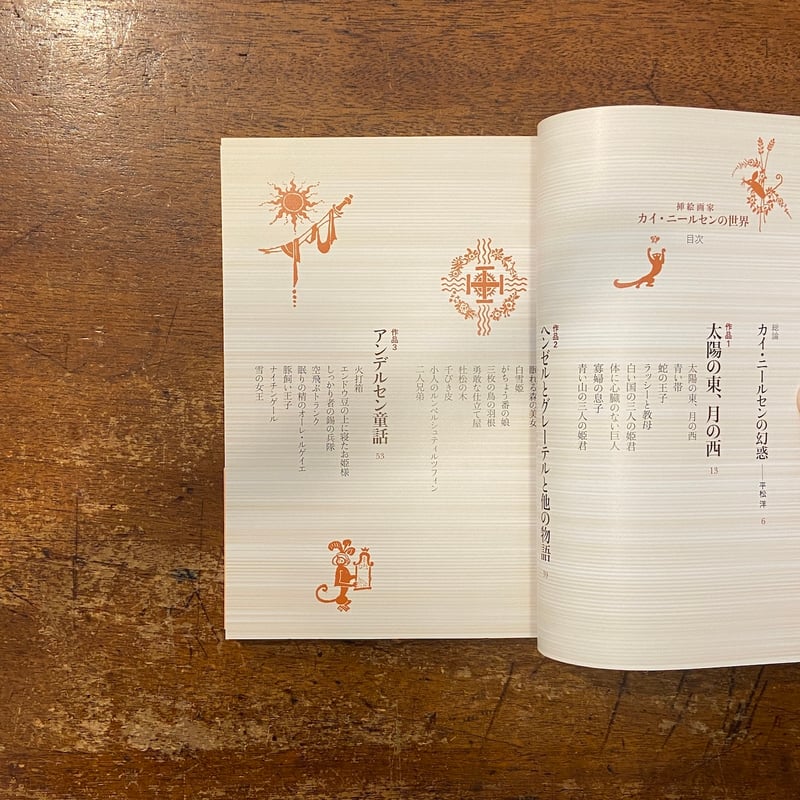 挿絵画家
カイ・ニールセンの世界
目次
総論
カイ・ニールセンの幻惑──平松 洋 6
作品1
太陽の東、月の西 13
太陽の東、月の西
青い帯
蛇の王子
ラッシーと教母
白い国の三人の姫君
体に心臓のない巨人
寡婦の息子
青い山の三人の姫君
作品2
ヘンゼルとグレーテルと他の物語
眠れる森の美女
白雪姫
がちょう番の娘
三枚の鳥の羽根
勇敢な仕立て屋
杜松の木
千びき皮
小人のルンペルシュティルツフィン
二人兄弟
作品3
アンデルセン童話 53
火打箱
エンドウ豆の上に寝たお姫様
しっかり者の錫の兵隊
空飛ぶトランク
眠りの精のオーレ・ルゲイエ
豚飼い王子
ナイチンゲール
雪の女王